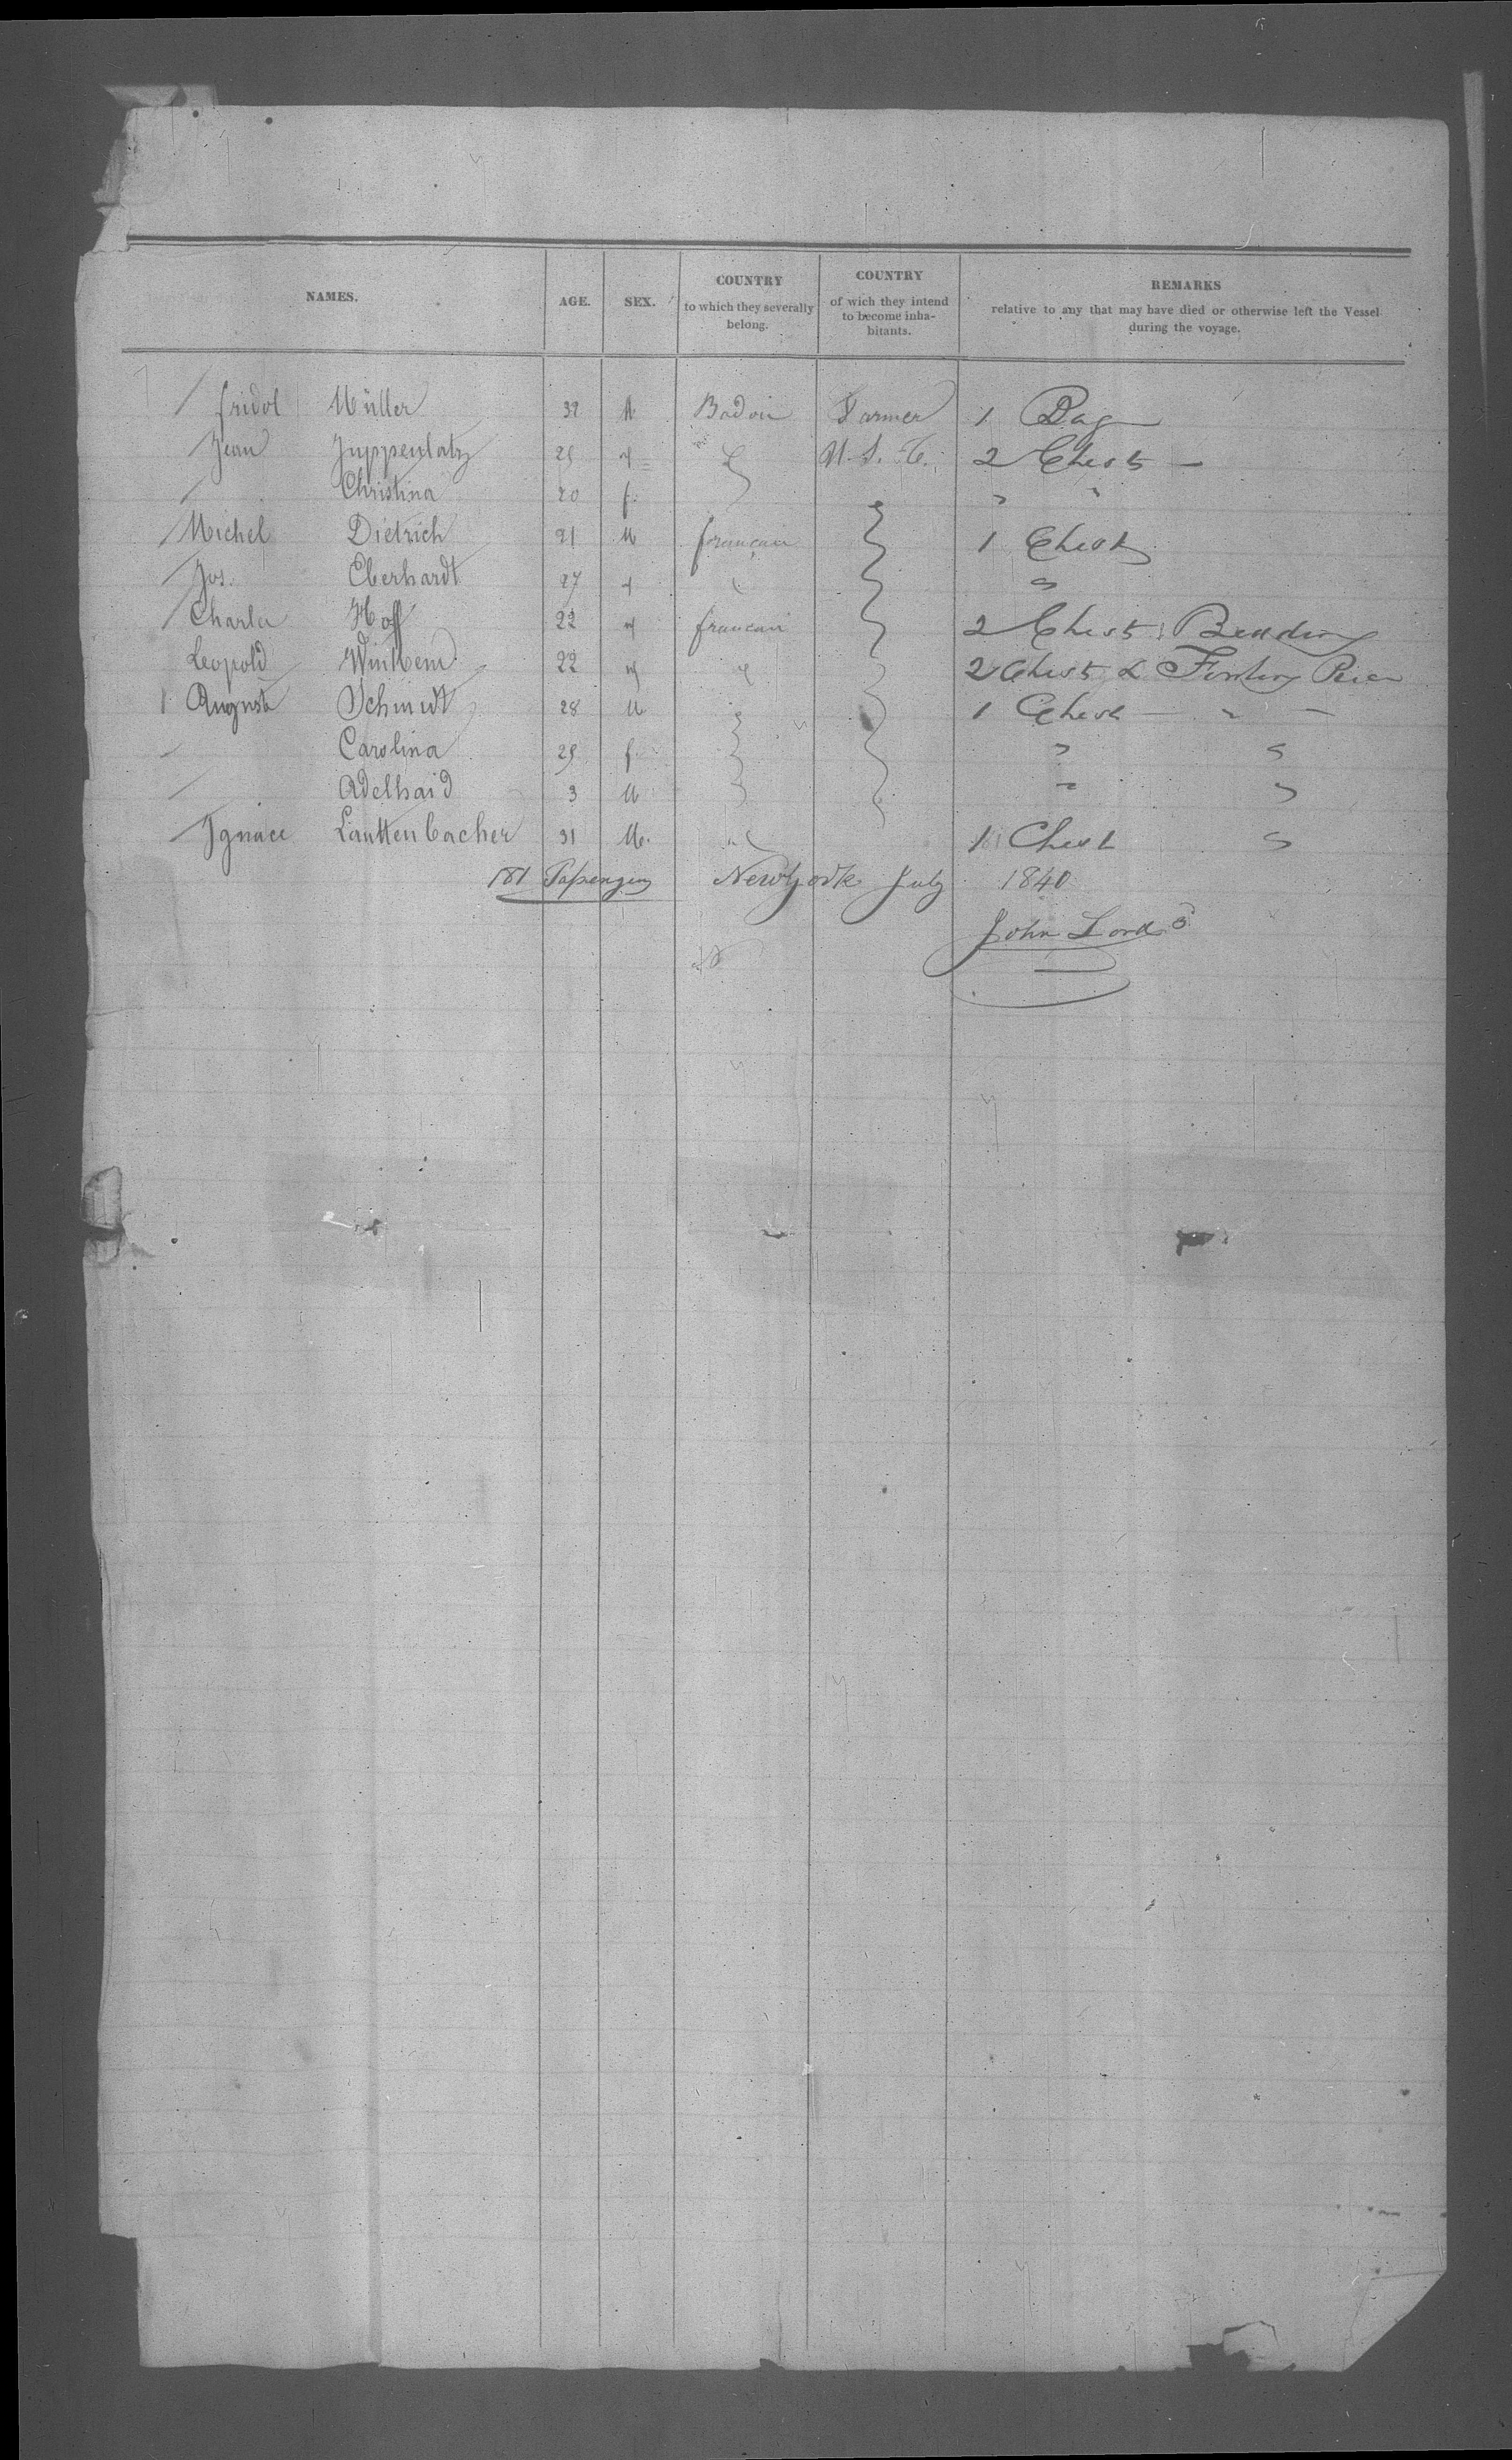 NAMES. AGE. SEX. COUNTRY to which they severally belong. COUNTRY of wich they intend to become inha-bitants. REMARKS relative to any that may have died or otherwise left the Vessel during the voyage.
fridol Müller 32 M Badois Farmer 1 Bag
Jean Juppenlatz 25 " " U. S. 2 Chests
Christina 20 f. " "
Michel Dietrich 21 M francais 1 Chest
Jos. Eberhardt 27 " " "
Charles Hoff 22 " francais 2 Chests Bedding
Leopold 22 " " 2 Chests &
August Schmidt 28 M 1 Chest " 
Carolina 25 f. " "
Adelhaid 3 M " "
Ignace Lauttenbacher 31 M. " 1 Chest "
181 Passengers New York July 1840
John Lord